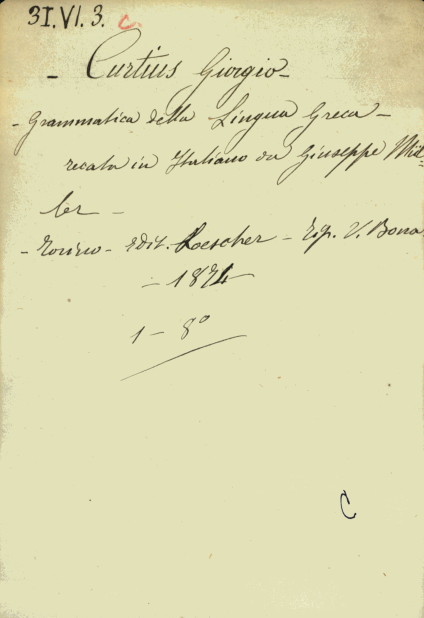 31.VI.3. C
- Curtius Giorgio -
- Grammatica della Lingua Greca -
recata in Italiano da Giuseppe Mül=
ler -
- Torino - edit. Loescher - Tip. V. Bona
- 1874
1 - 8º
C